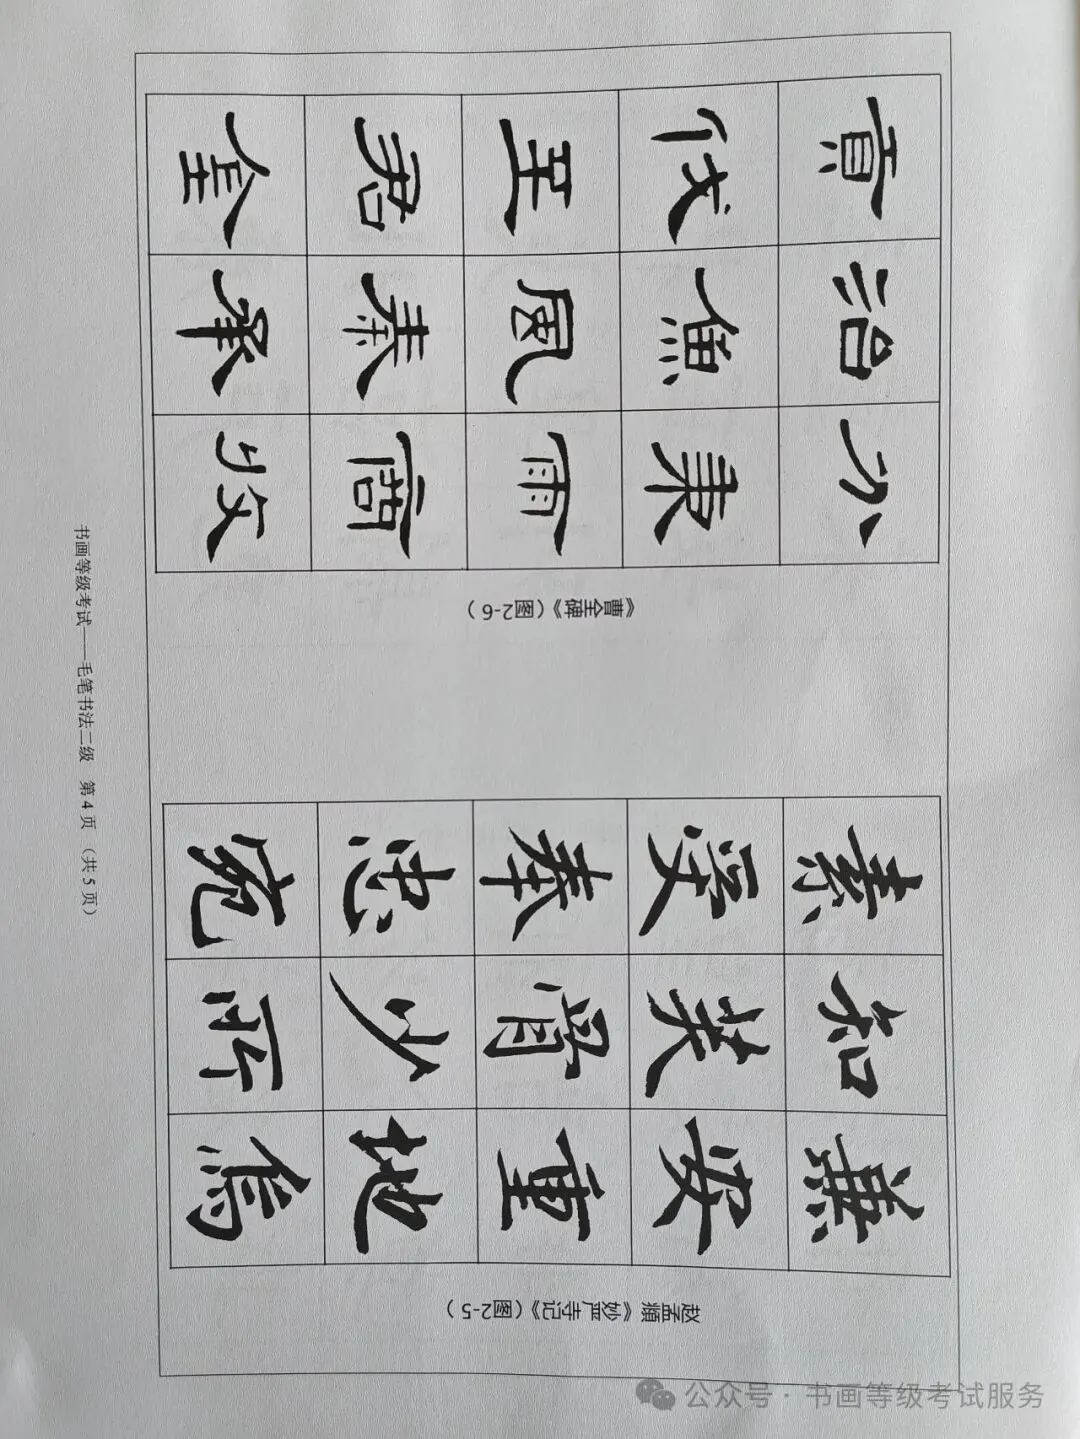 赵孟頫《妙严寺记》(图2-5)
無安重地為
知滑少所
素受奉忠宛
《曹全碑》(图2-6)
分秉雨嗇收
治魚風秦承
代至君全
书画等级考试——毛笔书法二级 第4页（共5页）
公众号·书画等级考试服务